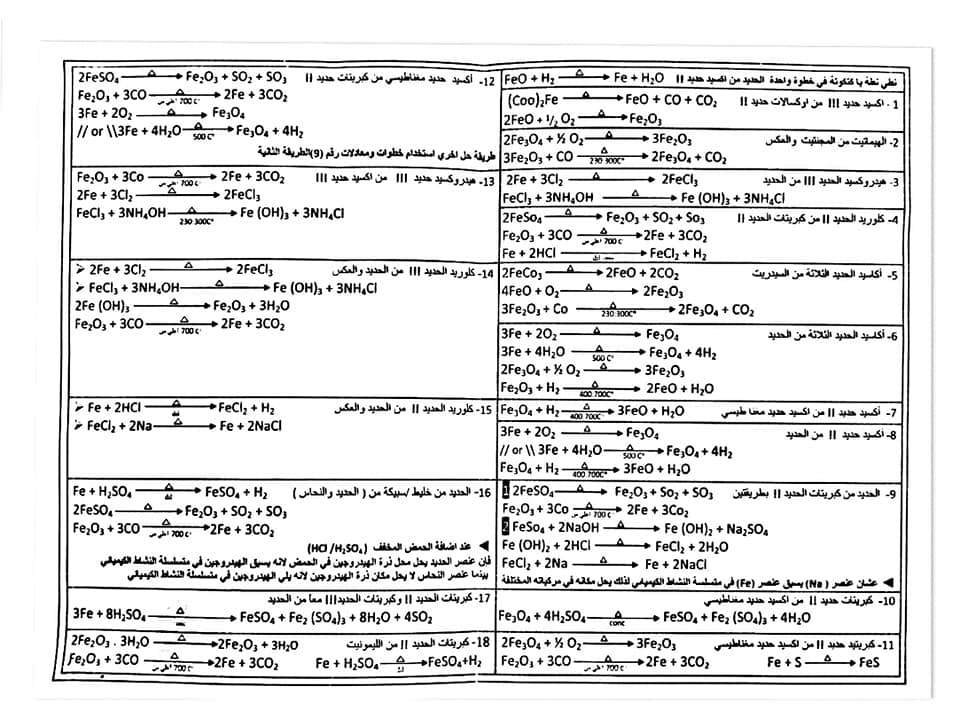 نطي نطة يا كتكوتة في خطوة واحدة الحديد من اكسيد حديد II FeO + H₂ —Δ→ Fe + H₂O
1 - اكسيد حديد III من اوكسالات حديد II (Coo)₂Fe —Δ→ FeO + CO + CO₂
2FeO + ½ O₂ —Δ→ Fe₂O₃
2- الهيماتيت من المجنتيت والعكس 2Fe₃O₄ + ½ O₂ —Δ→ 3Fe₂O₃
3Fe₂O₃ + CO —Δ 230 300C°→ 2Fe₃O₄ + CO₂
3- هيدروكسيد الحديد III من الحديد 2Fe + 3Cl₂ —Δ→ 2FeCl₃
FeCl₃ + 3NH₄OH —Δ→ Fe (OH)₃ + 3NH₄Cl
4- كلوريد الحديد II من كبريتات حديد II 2FeSo₄ —Δ→ Fe₂O₃ + SO₂ + So₃
Fe₂O₃ + 3CO —Δ اعلى من 700 C°→ 2Fe + 3CO₂
Fe + 2HCl —→ FeCl₂ + H₂
5- أكاسيد الحديد الثلاثة من السيدريت 2FeCo₃ —Δ→ 2FeO + 2CO₂
4FeO + O₂ —Δ→ 2Fe₂O₃
3Fe₂O₃ + Co —Δ 230 300C°→ 2Fe₃O₄ + CO₂
6- أكاسيد الحديد الثلاثة من الحديد 3Fe + 2O₂ —Δ→ Fe₃O₄
3Fe + 4H₂O —Δ 500 C°→ Fe₃O₄ + 4H₂
2Fe₃O₄ + ½ O₂ —Δ→ 3Fe₂O₃
Fe₂O₃ + H₂ —Δ 400 700C°→ 2FeO + H₂O
7- أكسيد حديد II من اكسيد حديد مغناطيسي Fe₃O₄ + H₂ —Δ 400 700C°→ 3FeO + H₂O
8- أكسيد حديد II من الحديد 3Fe + 2O₂ —Δ→ Fe₃O₄
// or \\ 3Fe + 4H₂O —Δ 500 C°→ Fe₃O₄ + 4H₂
Fe₃O₄ + H₂ —Δ 400 700C°→ 3FeO + H₂O
9- الحديد من كبريتات حديد II بطريقتين 1 2FeSO₄ —Δ→ Fe₂O₃ + So₂ + SO₃
Fe₂O₃ + 3Co —Δ اعلى من 700 C°→ 2Fe + 3Co₂
2 FeSo₄ + 2NaOH —Δ→ Fe (OH)₂ + Na₂SO₄
Fe (OH)₂ + 2HCl —Δ→ FeCl₂ + 2H₂O
FeCl₂ + 2Na —Δ→ Fe + 2NaCl
◄ عشان عنصر (Na) يسبق عنصر (Fe) في متسلسة النشاط الكيميائي لذلك يحل مكانه في مركباته المختلفة
10- كبريتات حديد II من اكسيد حديد مغناطيسي
Fe₃O₄ + 4H₂SO₄ —Δ conc→ FeSO₄ + Fe₂ (SO₄)₃ + 4H₂O
11- كبريتيد حديد II من اكسيد حديد مغناطيسي 2Fe₃O₄ + ½ O₂ —Δ→ 3Fe₂O₃
Fe₂O₃ + 3CO —Δ اعلى من 700 C°→ 2Fe + 3CO₂ Fe + S —Δ→ FeS
12- أكسيد حديد مغناطيسي من كبريتات حديد II 2FeSO₄ —Δ→ Fe₂O₃ + SO₂ + SO₃
Fe₂O₃ + 3CO —Δ اعلى من 700 C°→ 2Fe + 3CO₂
3Fe + 2O₂ —Δ→ Fe₃O₄
// or \\3Fe + 4H₂O —Δ 500 C°→ Fe₃O₄ + 4H₂
طريقة حل اخري استخدام خطوات ومعادلات رقم (9)الطريقة الثانية
13- هيدروكسيد حديد III من اكسيد حديد III Fe₂O₃ + 3Co —Δ اعلى من 700 C°→ 2Fe + 3CO₂
2Fe + 3Cl₂ —Δ→ 2FeCl₃
FeCl₃ + 3NH₄OH —Δ 230 300C°→ Fe (OH)₃ + 3NH₄Cl
14- كلوريد الحديد III من الحديد والعكس ➢ 2Fe + 3Cl₂ —Δ→ 2FeCl₃
➢ FeCl₃ + 3NH₄OH —Δ→ Fe (OH)₃ + 3NH₄Cl
2Fe (OH)₃ —Δ→ Fe₂O₃ + 3H₂O
Fe₂O₃ + 3CO —Δ اعلى من 700 C°→ 2Fe + 3CO₂
15- كلوريد الحديد II من الحديد والعكس ➢ Fe + 2HCl —Δ→ FeCl₂ + H₂
➢ FeCl₂ + 2Na —Δ→ Fe + 2NaCl
16- الحديد من خليط /سبيكة من ( الحديد والنحاس ) Fe + H₂SO₄ —Δ→ FeSO₄ + H₂
2FeSO₄ —Δ→ Fe₂O₃ + SO₂ + SO₃
Fe₂O₃ + 3CO —Δ اعلى من 700 C°→ 2Fe + 3CO₂
◄ عند اضافة الحمض المخفف (HCl /H₂SO₄)
فإن عنصر الحديد يحل محل ذرة الهيدروجين في الحمض لانه يسبق الهيدروجين في متسلسلة النشاط الكيميائي
بينما عنصر النحاس لا يحل مكان ذرة الهيدروجين لانه يلي الهيدروجين في متسلسلة النشاط الكيميائي
17- كبريتات الحديد II وكبريتات الحديدIII معاً من الحديد
3Fe + 8H₂SO₄ —Δ→ FeSO₄ + Fe₂ (SO₄)₃ + 8H₂O + 4SO₂
18- كبريتات الحديد II من الليمونيت 2Fe₂O₃ . 3H₂O —Δ→ 2Fe₂O₃ + 3H₂O
Fe₂O₃ + 3CO —Δ اعلى من 700 C°→ 2Fe + 3CO₂ Fe + H₂SO₄ —Δ→ FeSO₄+H₂